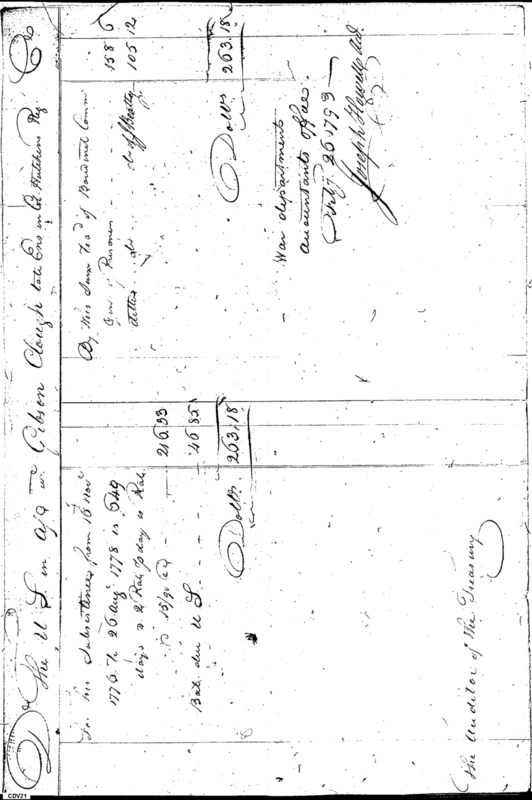 Dr The U S in a/c wt Gibson Clough late Ens in Col Hutchins Regt Cr
To his Subsistence from 16 Novr
1776 to 26 Augt 1778 is 649
days @ 2 Rats p day is Rats
@ 15/90 ea 216.33
Bal. due U S 46.85
Dolls. 263.18
By this Sum recd of Boudinot Comm
Gen. of Prisoners 158 6
ditto do of Beatty 105 12
Dolls. 263.18
War department
Accountants office
Feby 26 1793
Joseph Howell
The Auditor of the Treasury
CDV21